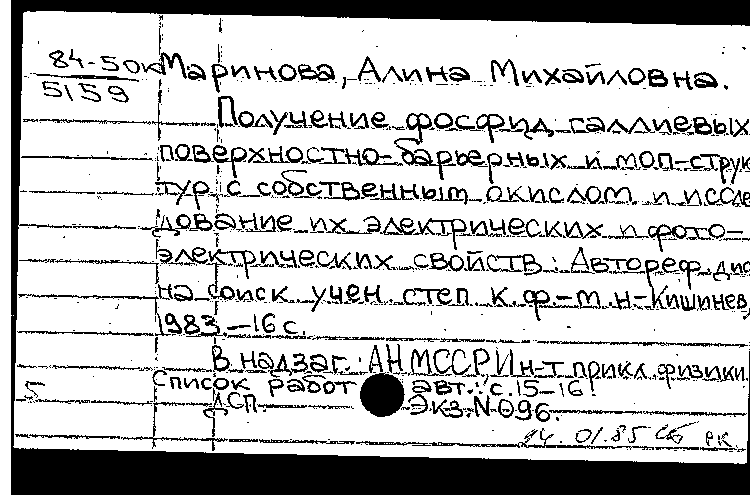 84-50к
5159
Маринова, Алина Михайловна.
Получение фосфид галлиевых
поверхностно-барьерных и моп-струк
тур с собственным окислом и иссле
дование их электрических и фото-
электрических свойств: Автореф. дис
на соиск учен. степ к. ф.-м. н-Кишинев,
1983.-16 с.
В надзаг.: АН МССР Ин-т прикл. физики
Список работ авт.: с. 15-16.
5
ДСП. Экз. N 096.
24.01.85